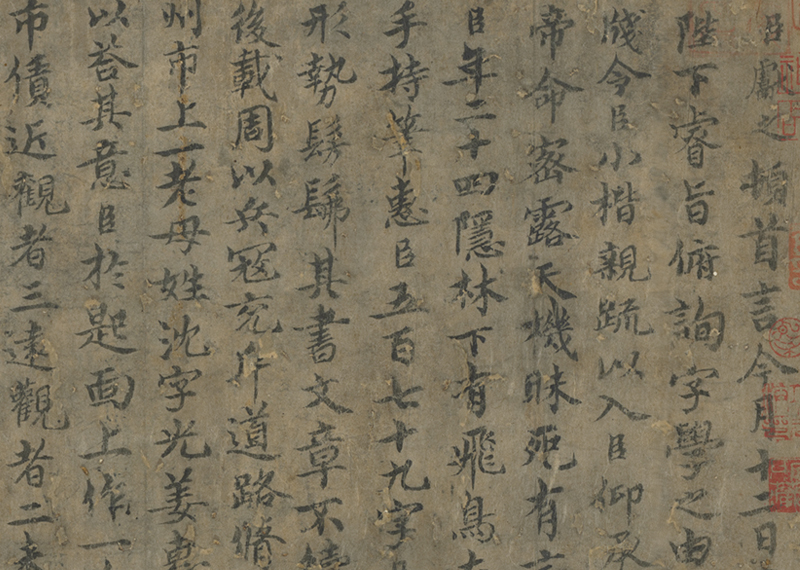 臣獻之頓首言今月十二日
陛下睿旨俯詢字學之由
牋今臣小楷親疏以入臣仰承
帝命密露天機昧死有
臣年二十四隱林下有飛鳥
手持筆惠臣五百七十九字
形勢髣髴其書文章不
後載周以兵寇充斥道路脩
州市上一老母姓沈字光姜惠
以荅其意臣於匙面上作一
市債近觀者三遠觀者二